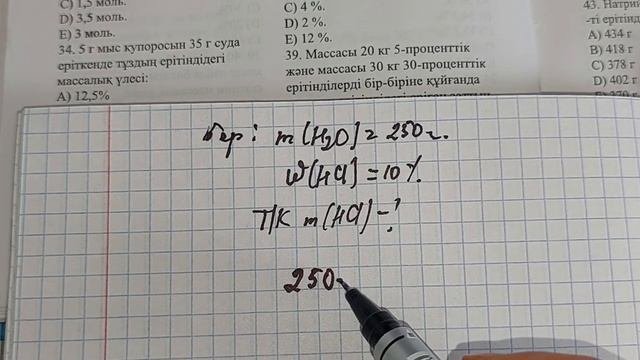 C) 1,5 моль.
D) 3,5 моль.
E) 3 моль.
34. 5 г мыс купоросын 35 г суда
еріткенде тұздың ерітіндідегі
массалық үлесі:
A) 12,5%
C) 4 %.
D) 2 %.
E) 12 %.
39. Массасы 20 кг 5-проценттік
және массасы 30 кг 30-проценттік
ерітінділерді бір-біріне құйғанда
43. Натрий
-ті ерітінд
A) 434 г
B) 418 г
C) 378 г
D) 402 г
Бер: m(H₂O) = 250 г.
W(HCl) = 10 %.
Т/К m(HCl) - ?
250